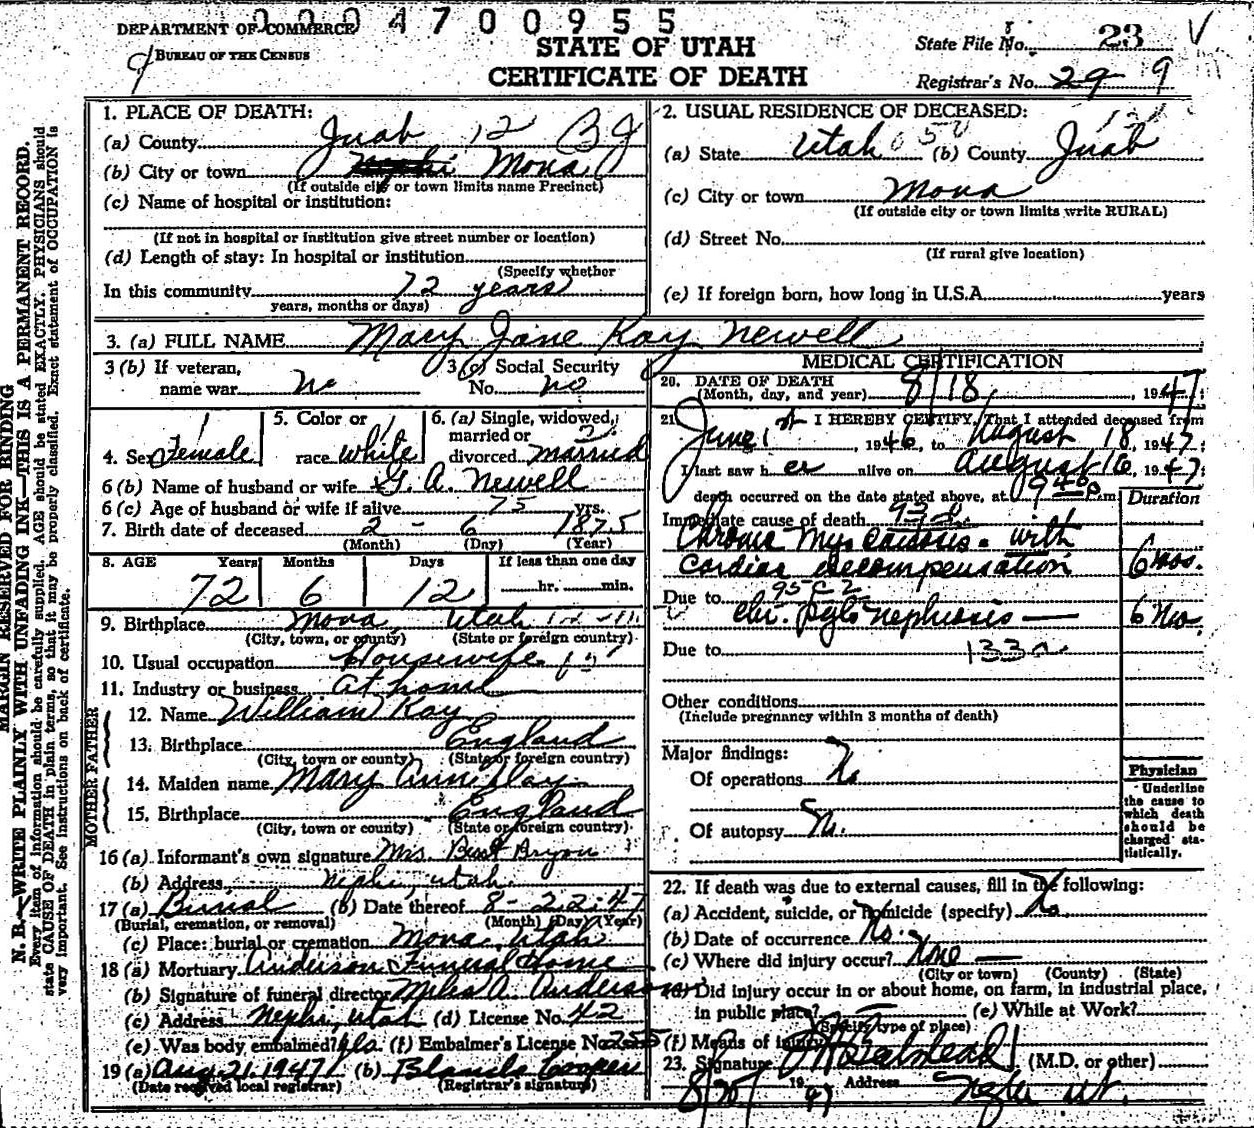 0004700955
DEPARTMENT OF COMMERCE
BUREAU OF THE CENSUS
STATE OF UTAH
CERTIFICATE OF DEATH
State File No. 23
Registrar's No. 29 9
MARGIN RESERVED FOR BINDING
N. B.—WRITE PLAINLY WITH UNFADING INK—THIS IS A PERMANENT RECORD.
Every item of information should be carefully supplied. AGE should be stated EXACTLY. PHYSICIANS should
state CAUSE OF DEATH in plain terms, so that it may be properly classified. Exact statement of OCCUPATION is
very important. See instructions on back of certificate.
1. PLACE OF DEATH:
(a) County Juab 12
(b) City or town Nephi Mona
(If outside city or town limits name Precinct)
(c) Name of hospital or institution:
(If not in hospital or institution give street number or location)
(d) Length of stay: In hospital or institution
(Specify whether
In this community 72 years
years, months or days)
2. USUAL RESIDENCE OF DECEASED:
(a) State Utah (b) County Juab
(c) City or town Mona
(If outside city or town limits write RURAL)
(d) Street No.
(If rural give location)
(e) If foreign born, how long in U.S.A. years
3. (a) FULL NAME Mary Jane Kay Newell
3 (b) If veteran, name war no
3 (c) Social Security No. no
4. Sex Female
5. Color or race white
6. (a) Single, widowed, married or divorced married
6 (b) Name of husband or wife G. A. Newell
6 (c) Age of husband or wife if alive 75 yrs.
7. Birth date of deceased 2 - 6 1875
(Month) (Day) (Year)
8. AGE Years Months Days If less than one day
72 6 12 hr. min.
9. Birthplace Mona Utah
(City, town, or county) (State or foreign country)
10. Usual occupation Housewife
11. Industry or business At home
FATHER
12. Name William Kay
13. Birthplace England
(City, town or county) (State or foreign country)
MOTHER
14. Maiden name Mary Anne
15. Birthplace England
(City, town or county) (State or foreign country)
16 (a) Informant's own signature Mrs. Bert Bryon
(b) Address Nephi, Utah.
17 (a) Burial (b) Date thereof 8-22-47
(Burial, cremation, or removal) (Month) (Day) (Year)
(c) Place: burial or cremation Mona, Utah
18 (a) Mortuary Anderson Funeral Home
(b) Signature of funeral director Miles A. Anderson
(c) Address Nephi, Utah (d) License No. 42
(e) Was body embalmed? yes (f) Embalmer's License No. 255
19 (a) Aug 21, 1947 (b) Cooper
(Date received local registrar) (Registrar's signature)
MEDICAL CERTIFICATION
20. DATE OF DEATH
(Month, day, and year) 8/18, 1947
21. I HEREBY CERTIFY, That I attended deceased from
June 1st, 1946, to August 18, 1947;
I last saw her alive on August 16, 1947
death occurred on the date stated above, at 9 40 p m
Duration
Immediate cause of death 93d
Chronic Myocarditis. with
cardiac decompensation 6 mos.
Due to 95c2
chr. nephrosis — 6 Mos.
Due to 133a
Other conditions
(Include pregnancy within 3 months of death)
Major findings:
Of operations No
Of autopsy No.
Physician
Underline
the cause to
which death
should be
charged sta-
tistically.
22. If death was due to external causes, fill in the following:
(a) Accident, suicide, or homicide (specify) No.
(b) Date of occurrence No.
(c) Where did injury occur? None —
(City or town) (County) (State)
(d) Did injury occur in or about home, on farm, in industrial place,
in public place? — (e) While at Work?
(Specify type of place)
(f) Means of injury
23. Signature (M.D. or other)
8/20 1947 Address Nephi Ut.